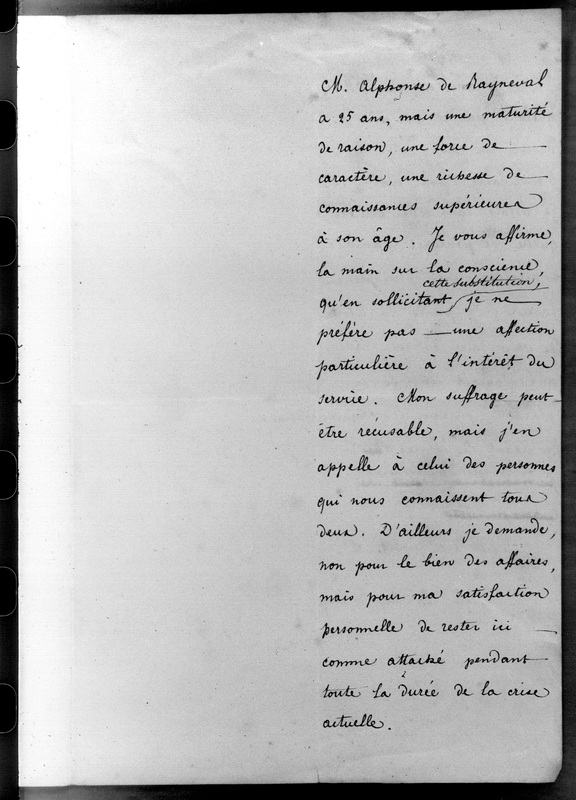 M. Alphonse de Rayneval
a 25 ans, mais une maturité
de raison, une force de
caractère, une richesse de
connaissances supérieures
à son âge. Je vous affirme,
la main sur la conscience,
cette substitution,
qu'en sollicitant je ne
préfère pas une affection
particulière à l'intérêt du
service. Mon suffrage peut
être récusable, mais j'en
appelle à celui des personnes
qui nous connaissent tous
deux. D'ailleurs je demande,
non pour le bien des affaires,
mais pour ma satisfaction
personnelle de rester ici
comme attaché pendant
toute la durée de la crise
actuelle.